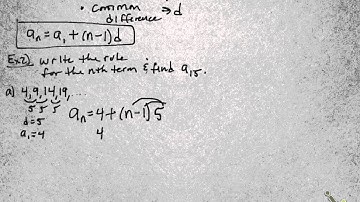 • common → d
difference
aₙ = a₁ + (n-1)d
Ex2) write the rule
for the nth term & find a₁₅.
a) 4, 9, 14, 19, ....
5 5 5
d=5
a₁=4
aₙ = 4 + (n-1)5
4